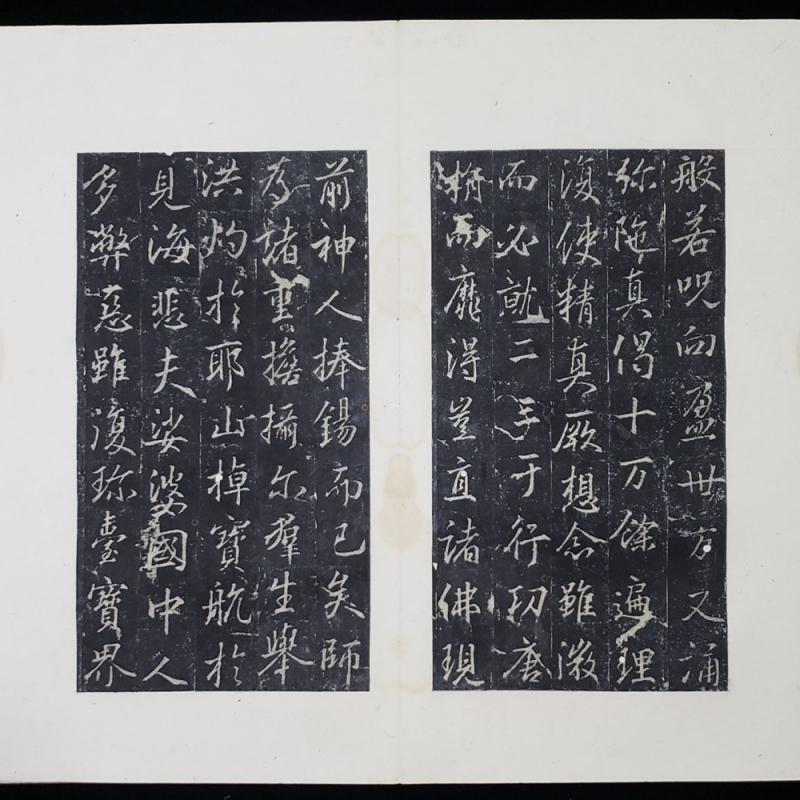 般若呪向盈卅万又誦
弥陁真偈十万餘遍理
復使精真厥想念雖微
而必就二三于行功唐
捐而靡得豈直諸佛現
前神人捧錫而已矣師
為諸重擔攝尔羣生舉
洪灼於耶山棹寶航於
見海悲夫娑婆國中人
多弊惡雖復珎臺寶界